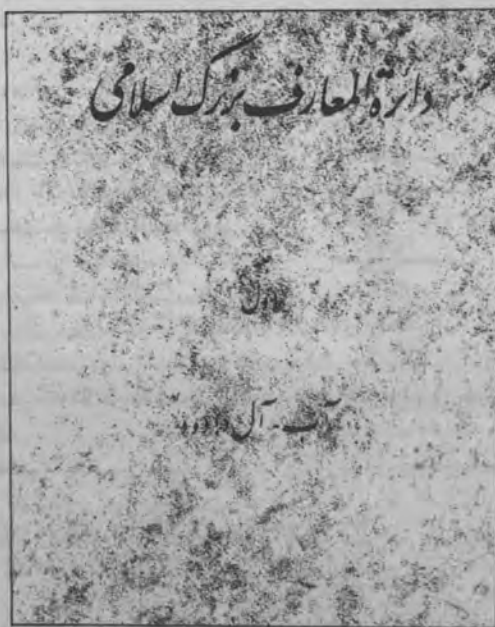 دائرة المعارف بزرگ اسلامی
جلد اول
آب - آل داوود